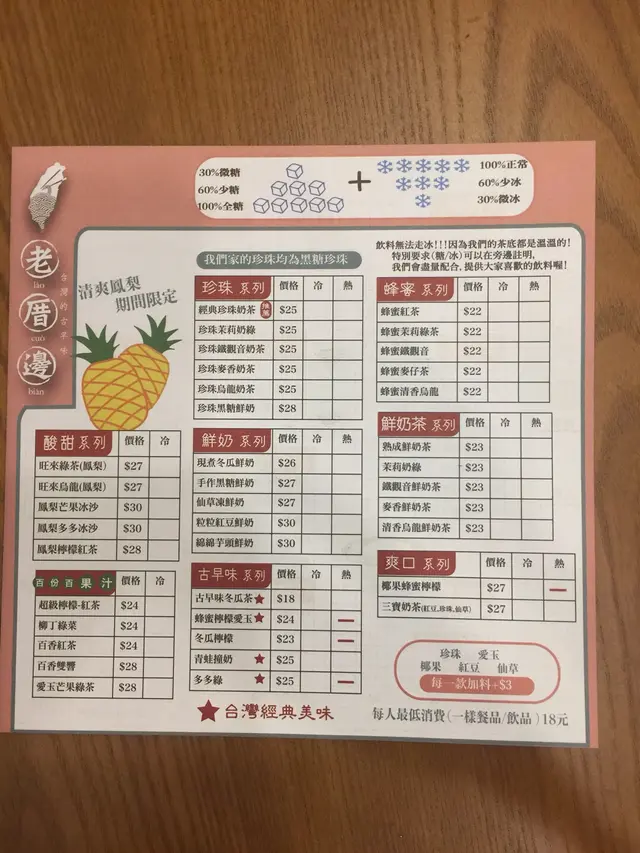 30%微糖
60%少糖
100%全糖
+
100%正常
60%少冰
30%微冰
老
lǎo
厝
cuò
邊
biān
台灣的古早味
清爽鳳梨
期間限定
我們家的珍珠均為黑糖珍珠
飲料無法走冰!!!因為我們的茶底都是溫溫的!
特別要求(糖/冰)可以在旁邊註明,
我們會盡量配合,提供大家喜歡的飲料喔!
珍珠 系列 價格 冷 熱
經典珍珠奶茶 推薦 $25
珍珠茉莉奶綠 $25
珍珠鐵觀音奶茶 $25
珍珠麥香奶茶 $25
珍珠烏龍奶茶 $25
珍珠黑糖鮮奶 $28
蜂蜜 系列 價格 冷 熱
蜂蜜紅茶 $22
蜂蜜茉莉綠茶 $22
蜂蜜鐵觀音 $22
蜂蜜麥仔茶 $22
蜂蜜清香烏龍 $22
酸甜 系列 價格 冷
旺來綠茶(鳳梨) $27
旺來烏龍(鳳梨) $27
鳳梨芒果冰沙 $30
鳳梨多多冰沙 $30
鳳梨檸檬紅茶 $28
鮮奶 系列 價格 冷 熱
現煮冬瓜鮮奶 $26
手作黑糖鮮奶 $27
仙草凍鮮奶 $27
粒粒紅豆鮮奶 $30
綿綿芋頭鮮奶 $30
鮮奶茶 系列 價格 冷 熱
熟成鮮奶茶 $23
茉莉奶綠 $23
鐵觀音鮮奶茶 $23
麥香鮮奶茶 $23
清香烏龍鮮奶茶 $23
百份百果汁 價格 冷
超級檸檬-紅茶 $24
柳丁綠菜 $24
百香紅茶 $24
百香雙響 $28
愛玉芒果綠茶 $28
古早味 系列 價格 冷 熱
古早味冬瓜茶★ $18
蜂蜜檸檬愛玉★ $24 —
冬瓜檸檬 $23 —
青蛙撞奶 ★ $25
多多綠 ★ $25 —
爽口 系列 價格 冷 熱
椰果蜂蜜檸檬 $27 —
三寶奶茶(紅豆.珍珠.仙草) $27
珍珠 愛玉
椰果 紅豆 仙草
每一款加料+$3
★台灣經典美味
每人最低消費(一樣餐品/飲品)18元